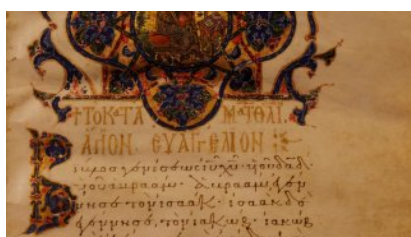 +ΤΟ Κ̅Τ̅Α ΜΑΤΘΑΙ
ΑΓΙΟΝ ΕΥΑΓΓΕΛΙΟΝ
Βίβλος γενέσεως ι̅υ̅ χ̅υ̅ υἱοῦ δα̅δ̅
υἱοῦ ἀβραάμ· ἀβραὰμ ἐγέν
νησε τὸν ἰσαάκ· ἰσαὰκ δὲ
ἐγέννησε τὸν ἰακώβ· ἰακὼβ